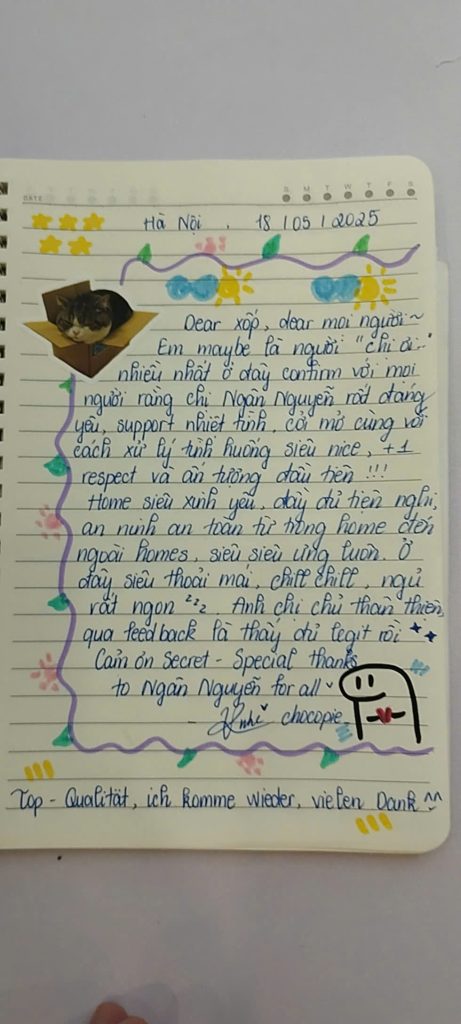 DATE
S M T W T F S
Hà Nội, 18/05/2025
Dear xốp, dear mọi người ~
Em maybe là người "chị ơi"
nhiều nhất ở đây confirm với mọi
người rằng chị Ngân Nguyễn rất đáng
yêu, support nhiệt tình, cởi mở cùng với
cách xử lý tình huống siêu nice, +1
respect và ấn tượng đầu tiên !!!
Home siêu xinh yêu, đầy đủ tiện nghi,
an ninh an toàn từ trong home đến
ngoài homes, siêu siêu ưng luôn. Ở
đây siêu thoải mái, chill chill, ngủ
rất ngon zzz. Anh chị chủ thân thiện,
qua feedback là thấy đủ legit rồi
Cảm ơn Secret - Special thanks
to Ngân Nguyễn for all
chocopie
Top - Qualität, ich komme wieder, vielen Dank ^^